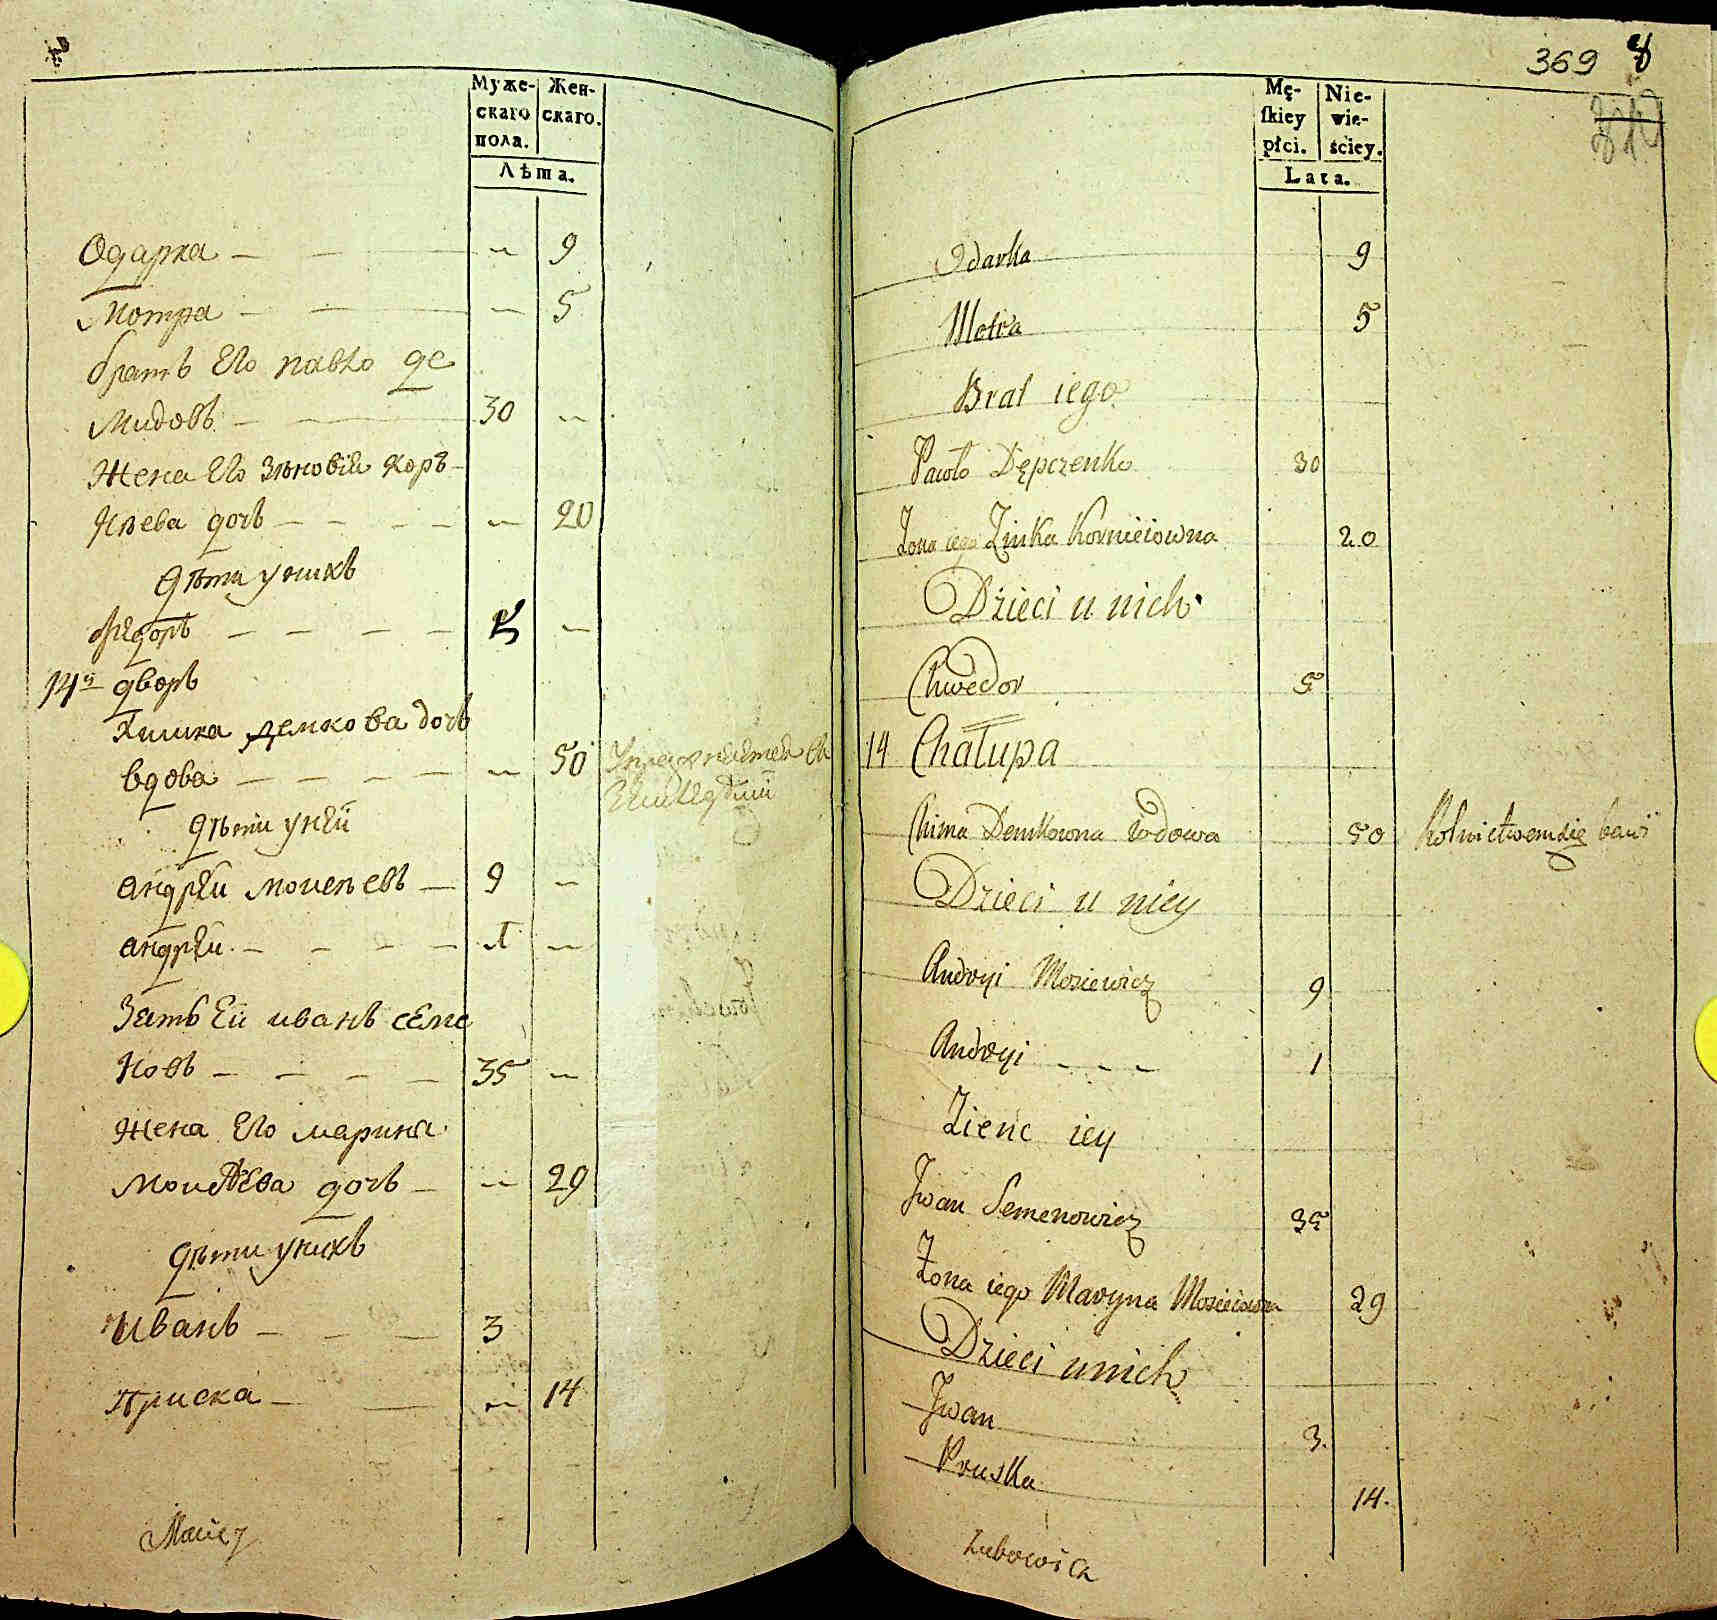 Муже-
скаго
пола.
Жен-
скаго.
Лѣта.
Одарка — — — 9
Мотра — — — 5
братъ Его павко де
мидовъ — — 30 —
Жена Его Зѣновія Кор-
нѣева дочь — — — — — 20
дѣти унихъ
Федоръ — — — — 5 —
14й дворъ
Химка демкова дочь
вдова — — — — — 50
дѣти унеи
андрЕи мосѣевъ — 9 —
андрЕи — — — — 1 —
Зять Еи иванъ семе
новъ — — — — 35 —
жена Его марина
мосѣева дочь — — 29
дѣти унихъ
Иванъ — — — 3
Приска — — — 14
Maciej
369 8
Mę-
skiey
płci.
Nie-
wie-
ściey.
Lata.
Odarka 9
Motra 5
Brat iego
Pawło Dępczenko 30
Żona iego Zinka Korneiowna 20
Dzieci u nich
Chwedor 5
14 Chałupa
Chima Demkowna wdowa 50 Rolnictwem się bawi
Dzieci u niey
Andryi Mosiewicz 9
Andryi - - - 1
Zienc iey
Jwan Semenowicz 35
Żona iego Maryna Mosieiowna 29
Dzieci unich
Jwan 3.
Pruska 14.
Lubowicz